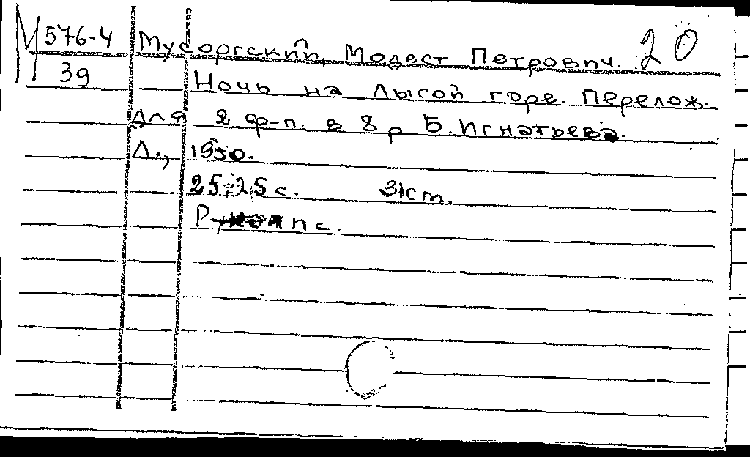 М 576-4 Мусоргский, Модест Петрович. 20
39 Ночь на лысой горе. Перелож.
для 2 ф-п. в 8 р Б. Игнатьева.
Л., 1950.
25, 25 с. 31 см.